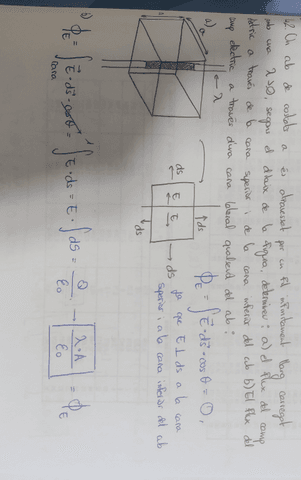 Un cub de costat a és atravessat per un fil infinitament llarg carregat
amb una λ>0, segons el dibuix de la figura, determineu: a) el flux del camp
elèctric a través de la cara superior i de la cara inferior del cub b) El flux del
camp elèctric a través d'una cara lateral qualsevol del cub:
a)
a
λ
ds
E
E
ds
ds
ds
ϕ_E = ∫ E·ds·cosθ = 0,
ja que E ⊥ ds a la cara
superior i a la cara inferior del cub
b)
ϕ_E = ∫cara E·ds·cosθ = ∫ E·ds = E·∫ds = Q/ε₀ → λ·A/ε₀ = ϕ_E